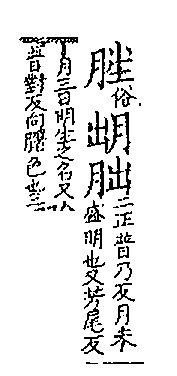 脞俗朏二正普乃反月未
盛明也又芳尾反
月三日明生之名又
普對反向曙色也三